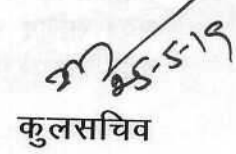 25-5-19
कुलसचिव